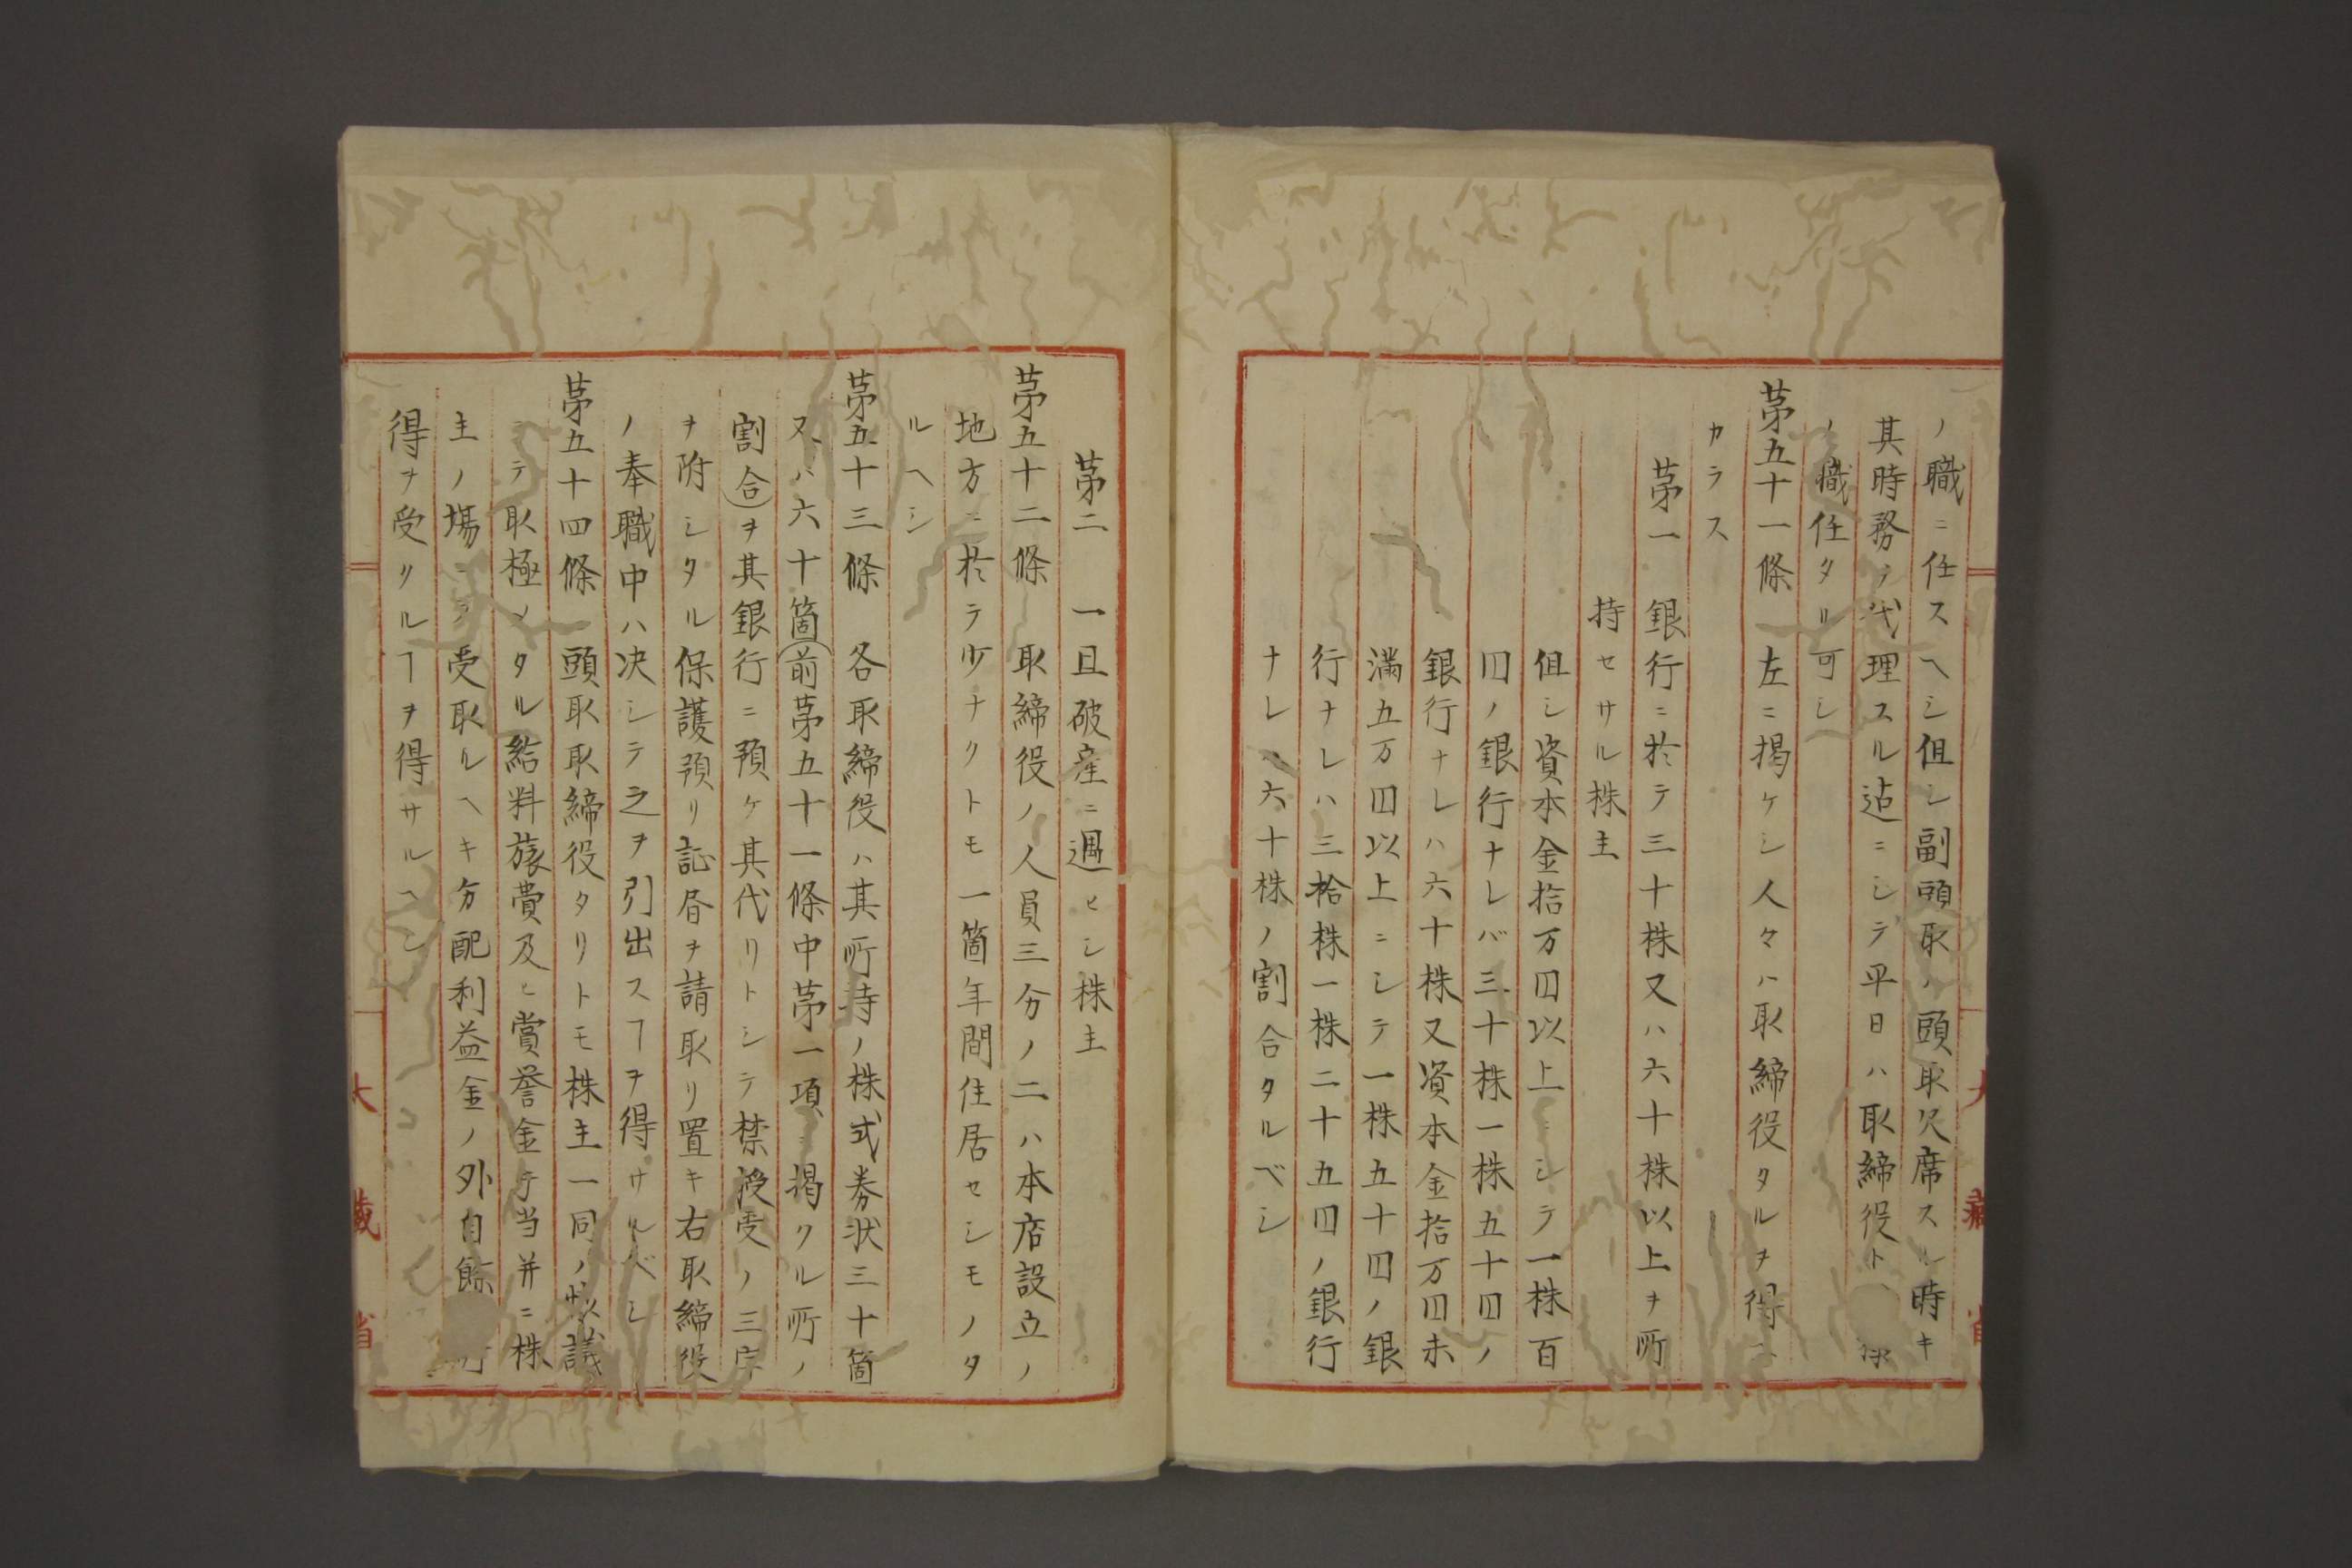 ノ職ニ任スヘシ但シ副頭取ハ頭取欠席スル時キ
其時務ヲ代理スル迠ニシテ平日ハ取締役ト
ノ職任タル可シ
第五十一條 左ニ掲ケシ人々ハ取締役タルヲ得ヘ
カラス
第一 銀行ニ於テ三十株又ハ六十株以上ヲ所
持セサル株主
但シ資本金拾万円以上ニシテ一株百
円ノ銀行ナレバ三十株一株五十円ノ
銀行ナレハ六十株又資本金拾万円未
満五万円以上ニシテ一株五十円ノ銀
行ナレハ三拾株一株二十五円ノ銀行
ナレハ六十株ノ割合タルベシ
第二 一旦破産ニ遇ヒシ株主
第五十二條 取締役ノ人員三分ノ二ハ本店設立ノ
地方ニ於テ少ナクトモ一箇年間住居セシモノタ
ルヘシ
第五十三條 各取締役ハ其所持ノ株式券状三十箇
又ハ六十箇(前第五十一條中第一項ニ掲クル所ノ
割合)ヲ其銀行ニ預ケ其代リトシテ禁授受ノ三字
ヲ附シタル保護預リ証書ヲ請取リ置キ右取締役
ノ奉職中ハ决シテ之ヲ引出スヿヲ得サルベシ
第五十四條 頭取取締役タリトモ株主一同ノ協議
ニテ取極メタル給料旅費及ヒ賞誉金手当并ニ株
主ノ場ニテ受取ルヘキ分配利益金ノ外自餘
得ヲ受クルヿヲ得サルヘシ
大藏省
大藏省